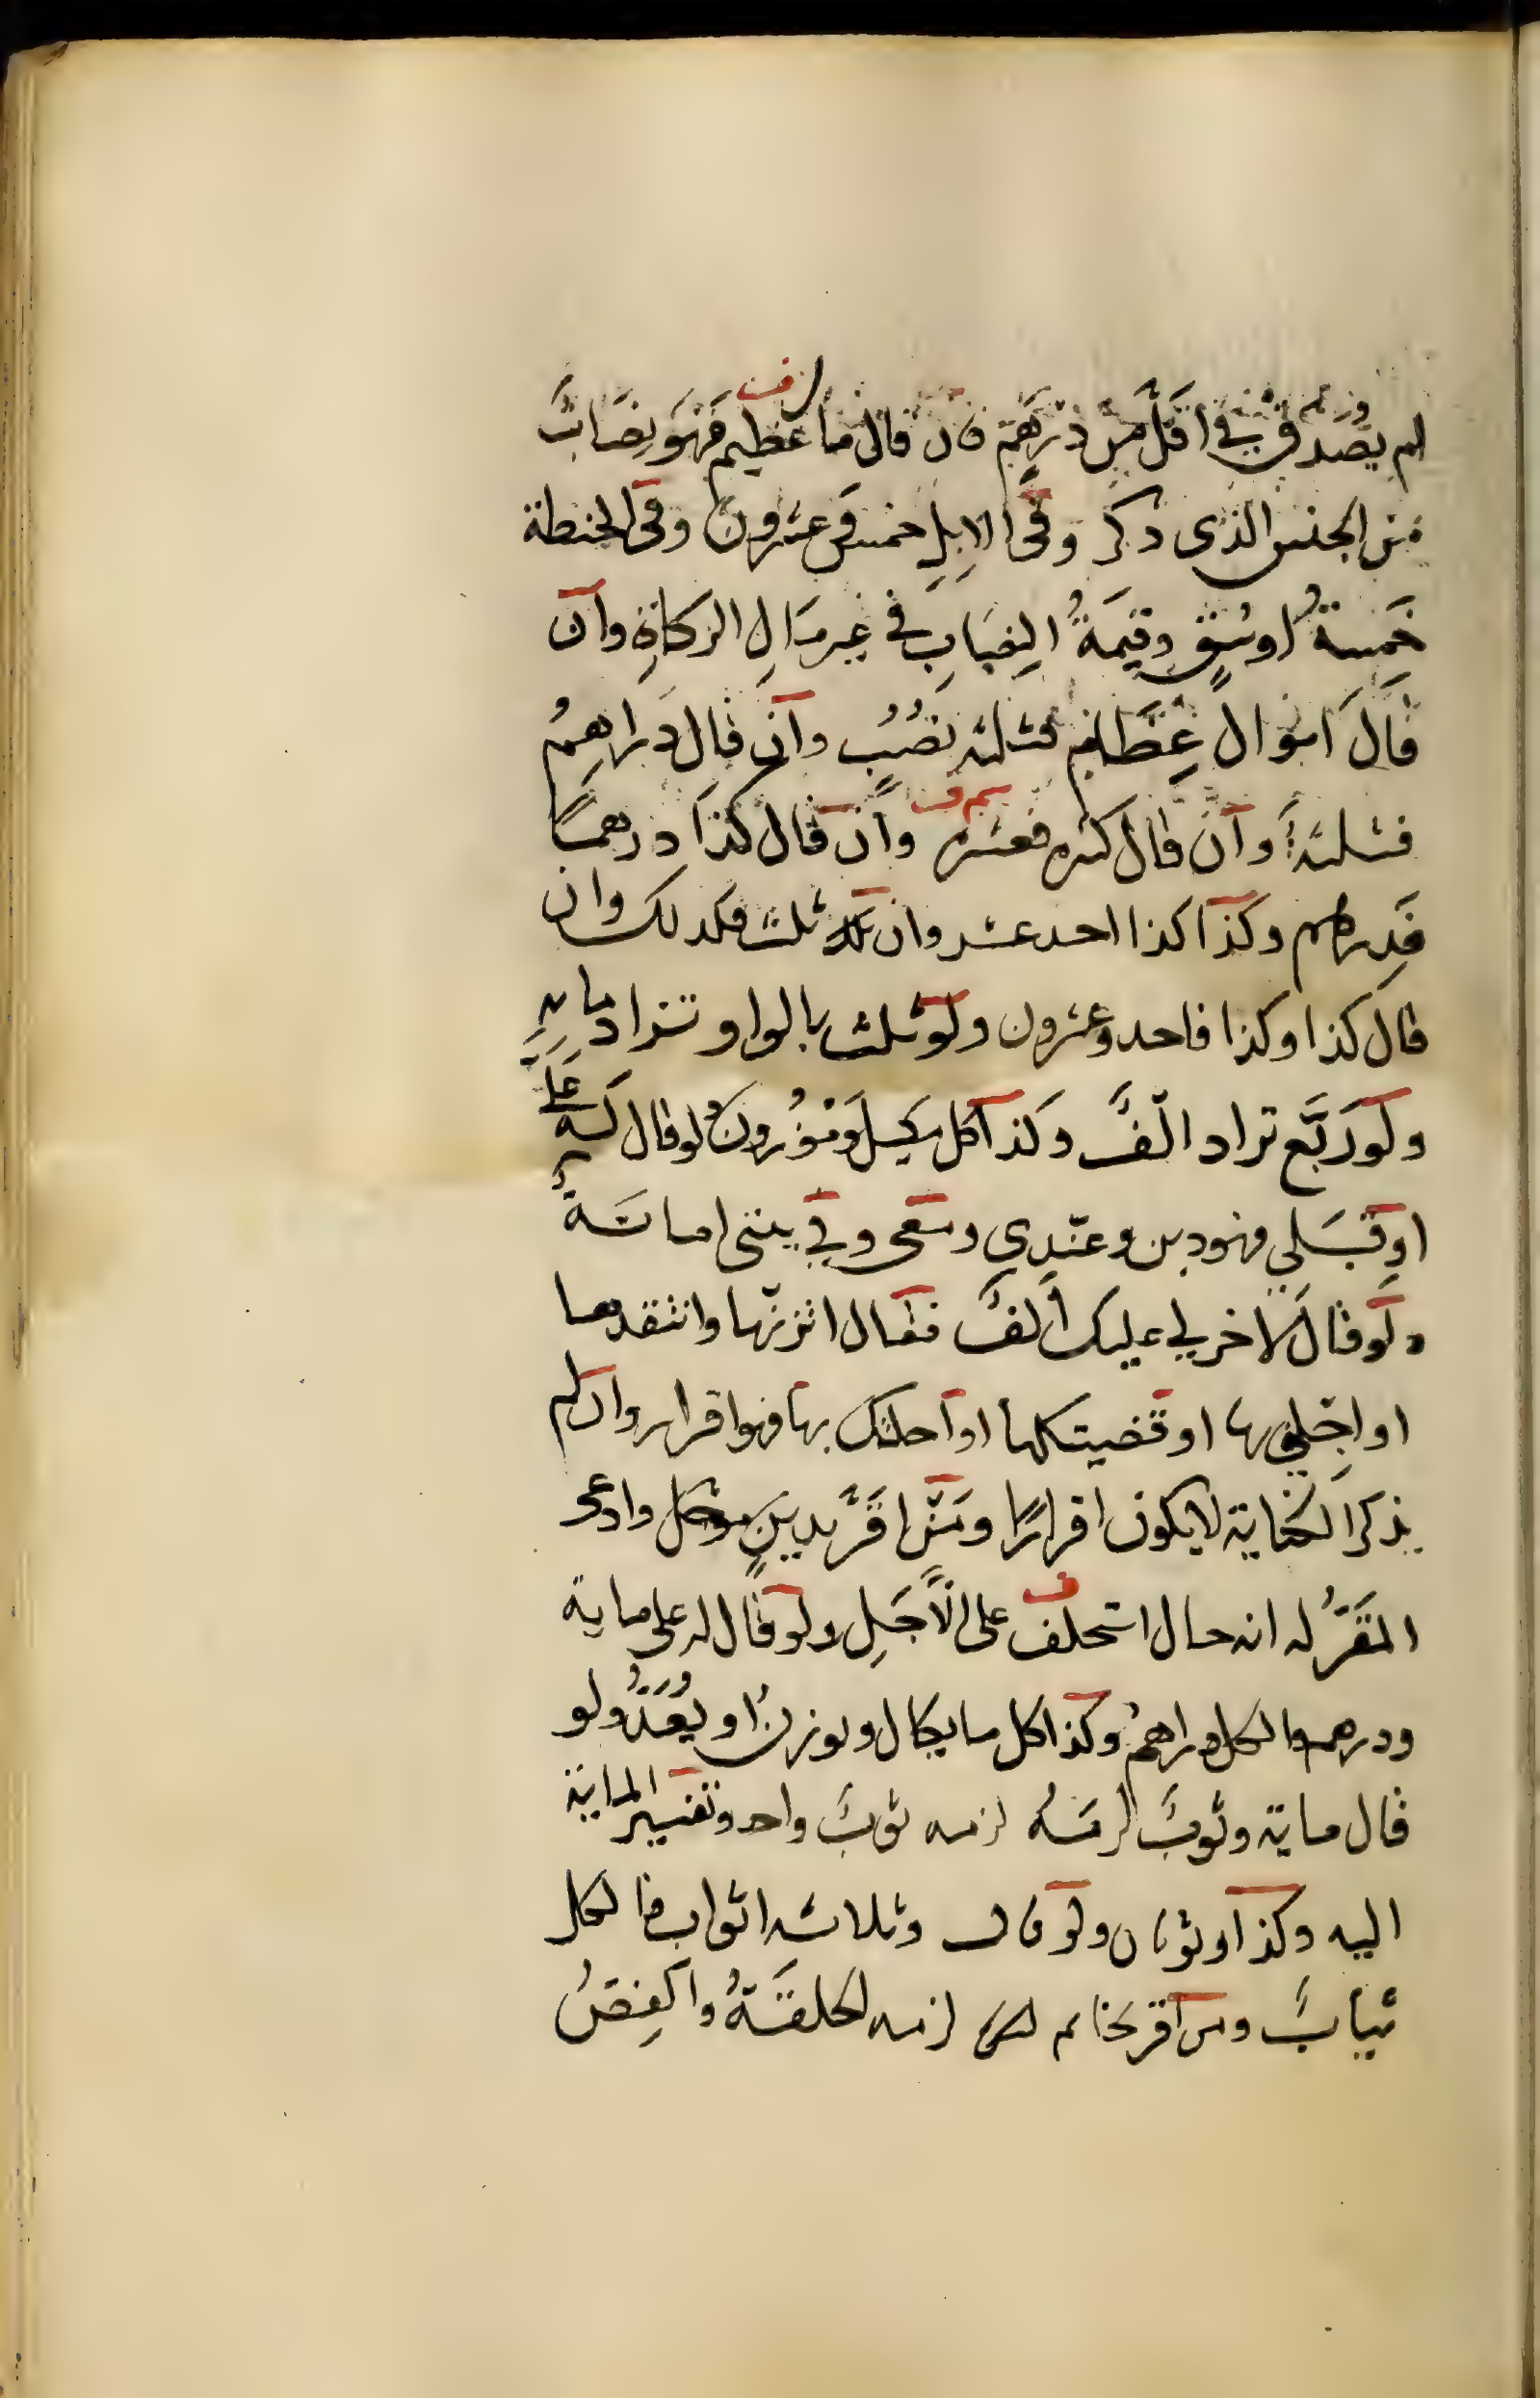 لم يُصَدَّق في اقلَّ من درهم فان قال مال عظيم فهو نِصَابٌ
من الجنس الذى ذكر وفى الابِلِ خمس وعشرون وفى الحنطة
خَمسةُ اوسُقٍ وقيمَةُ النِصَابِ في غير مَالِ الزكاةِ وان
قالَ اموالٌ عِظَامٌ فثلثه نُصُبٍ وان قال دَراهِمُ
فثلثةٌ وان قال كثيره فعشره وان قال كذا درهمًا
فدرهم وكذا كذا احد عشر وان ثلث فكذلك وان
قال كذا وكذا فاحد وعشرون ولو ثلث بالواو تزاد مايه
ولو رَبَّع تزاد الفٌ وكذا كل مكيل وموزون ولو قال له عَلَىَّ
او قِبَلي فهو دين وعندي ومعى وفي بيتى امانَةٌ
ولو قال لاخر لي عليك الفٌ فقال اتزنها وانتقدها
او اجّلني بها او قضيتكها او احلتك بها فهو اقرار وان لم
يذكر الكناية لا يكون اقرارًا ومن اقَرَّ بدينٍ مؤجل وادعى
المقَرُّ له انه حال استحلف على الأجَلِ ولو قال له على ماية
ودرهم فالكل دراهمُ وكذا كل ما يكال ويوزن او يُعَدُّ ولو
قال ماية وثوبٌ لزمَهُ لزمه ثوبٌ واحد وتفسير الماية
اليه وكذا وثوبان ولو قال وثلاثه اثواب فالكل
ثيابٌ ومن اقر بخاتم لزمه الحلقَةُ والفِصُ